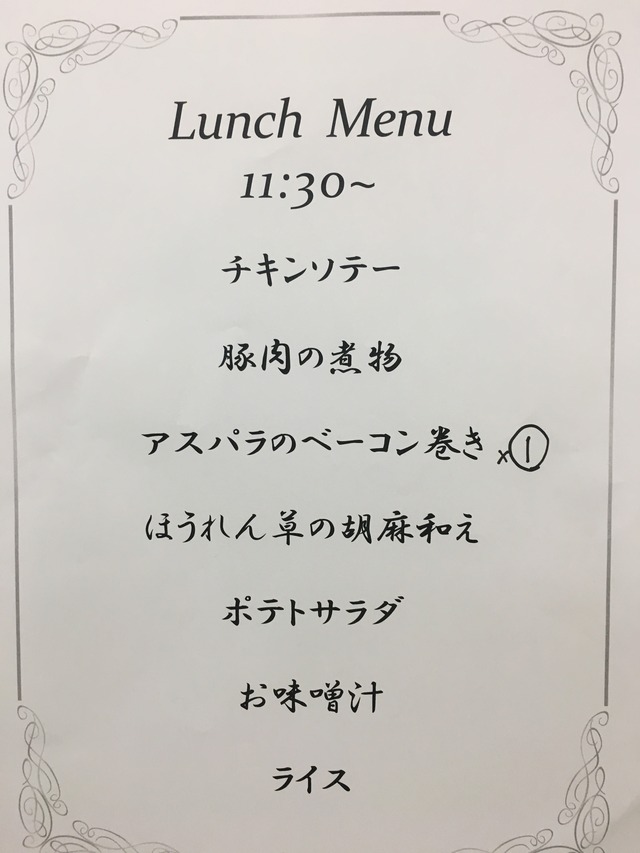 Lunch Menu
11:30~
チキンソテー
豚肉の煮物
アスパラのベーコン巻き ×①
ほうれん草の胡麻和え
ポテトサラダ
お味噌汁
ライス